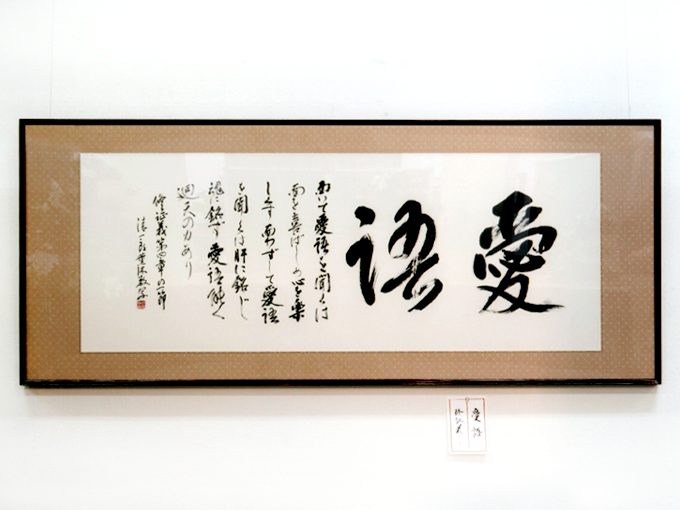 愛
語
面いて愛語を聞くは
面を喜ばしめ心を楽
しくす面わずして愛語
を聞くは肝に銘じ
魂に銘ず愛語能く
廻天の力あり
修証義第四章の一節
愛語